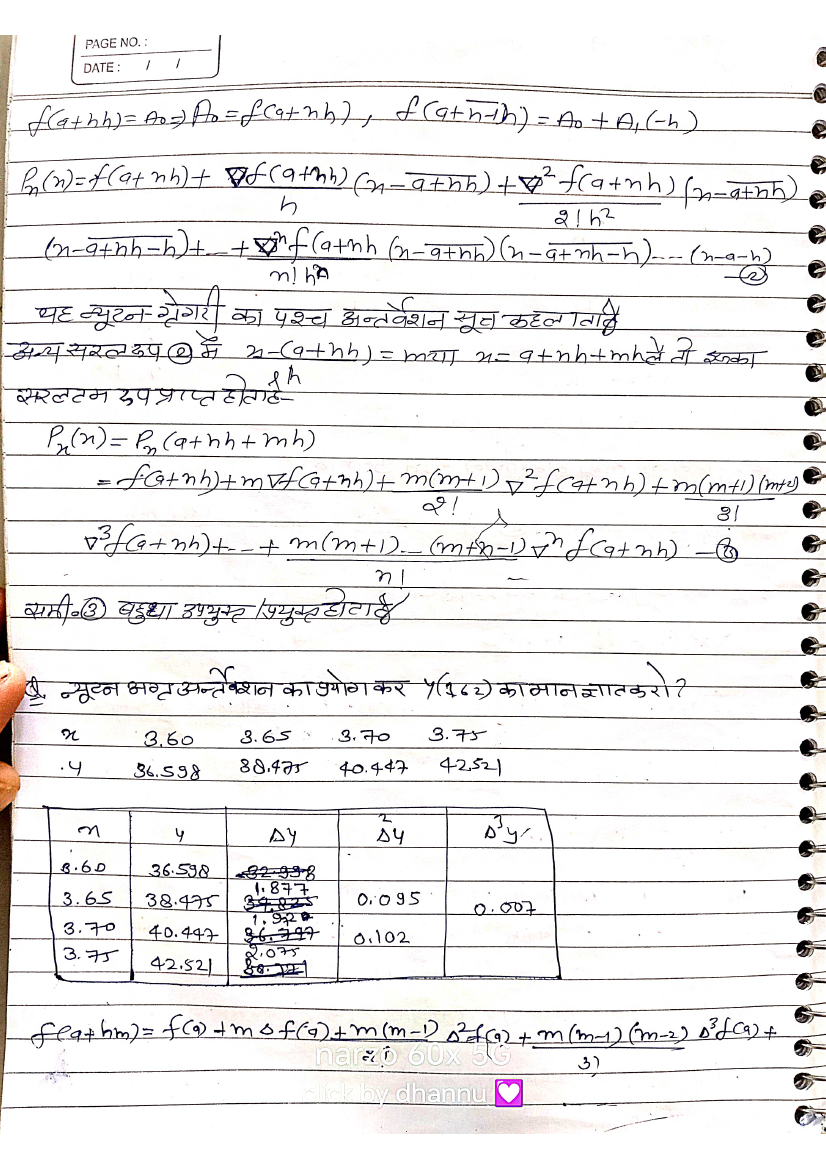 PAGE NO. :
DATE : / /
f(a+nh) = A₀ ⇒ A₀ = f(a+nh) , f(a+n-1h) = A₀ + A₁(-h)
Pn(x) = f(a+nh) + ∇f(a+nh)/h (x-a+nh) + ∇²f(a+nh)/2!h² (x-a+nh)
(x-a+nh-h)+...+ ∇ⁿf(a+nh/n!hⁿ (x-a+nh)(x-a+nh-h)---- (x-a-h) ②
यह न्यूटन-ग्रेगरी का पश्च अन्तर्वेशन सूत्र कहलाता है
अन्य सरल रूप ② में x-(a+nh)/h = m या x = a+nh+mh ले तो इसका
सरलतम रूप प्राप्त होता है-
Pn(x) = Pn(a+nh+mh)
= f(a+nh)+m∇f(a+nh)+ m(m+1)/2! ∇²f(a+nh) + m(m+1)(m+2)/3!
∇³f(a+nh)+--+ m(m+1)--(m+n-1)/n! ∇ⁿf(a+nh) -③
समी० ③ बहुधा उपयुक्त/प्रयुक्त होता है
Q. न्यूटन अग्र अन्तर्वेशन का प्रयोग कर का मान ज्ञात करो?
x 3.60 3.65 3.70 3.75
y 36.598 38.475 40.447 42.521
x y Δy Δ²y Δ³y
3.60 36.598
1.877
3.65 38.475 0.095
0.007
3.70 40.447 0.102
2.075
3.75 42.521
f(a+hm) = f(a) + mΔf(a) + m(m-1)/2! Δ²f(a) + m(m-1)(m-2)/3! Δ³f(a) +
narzo 60x 5G
click by dhannu